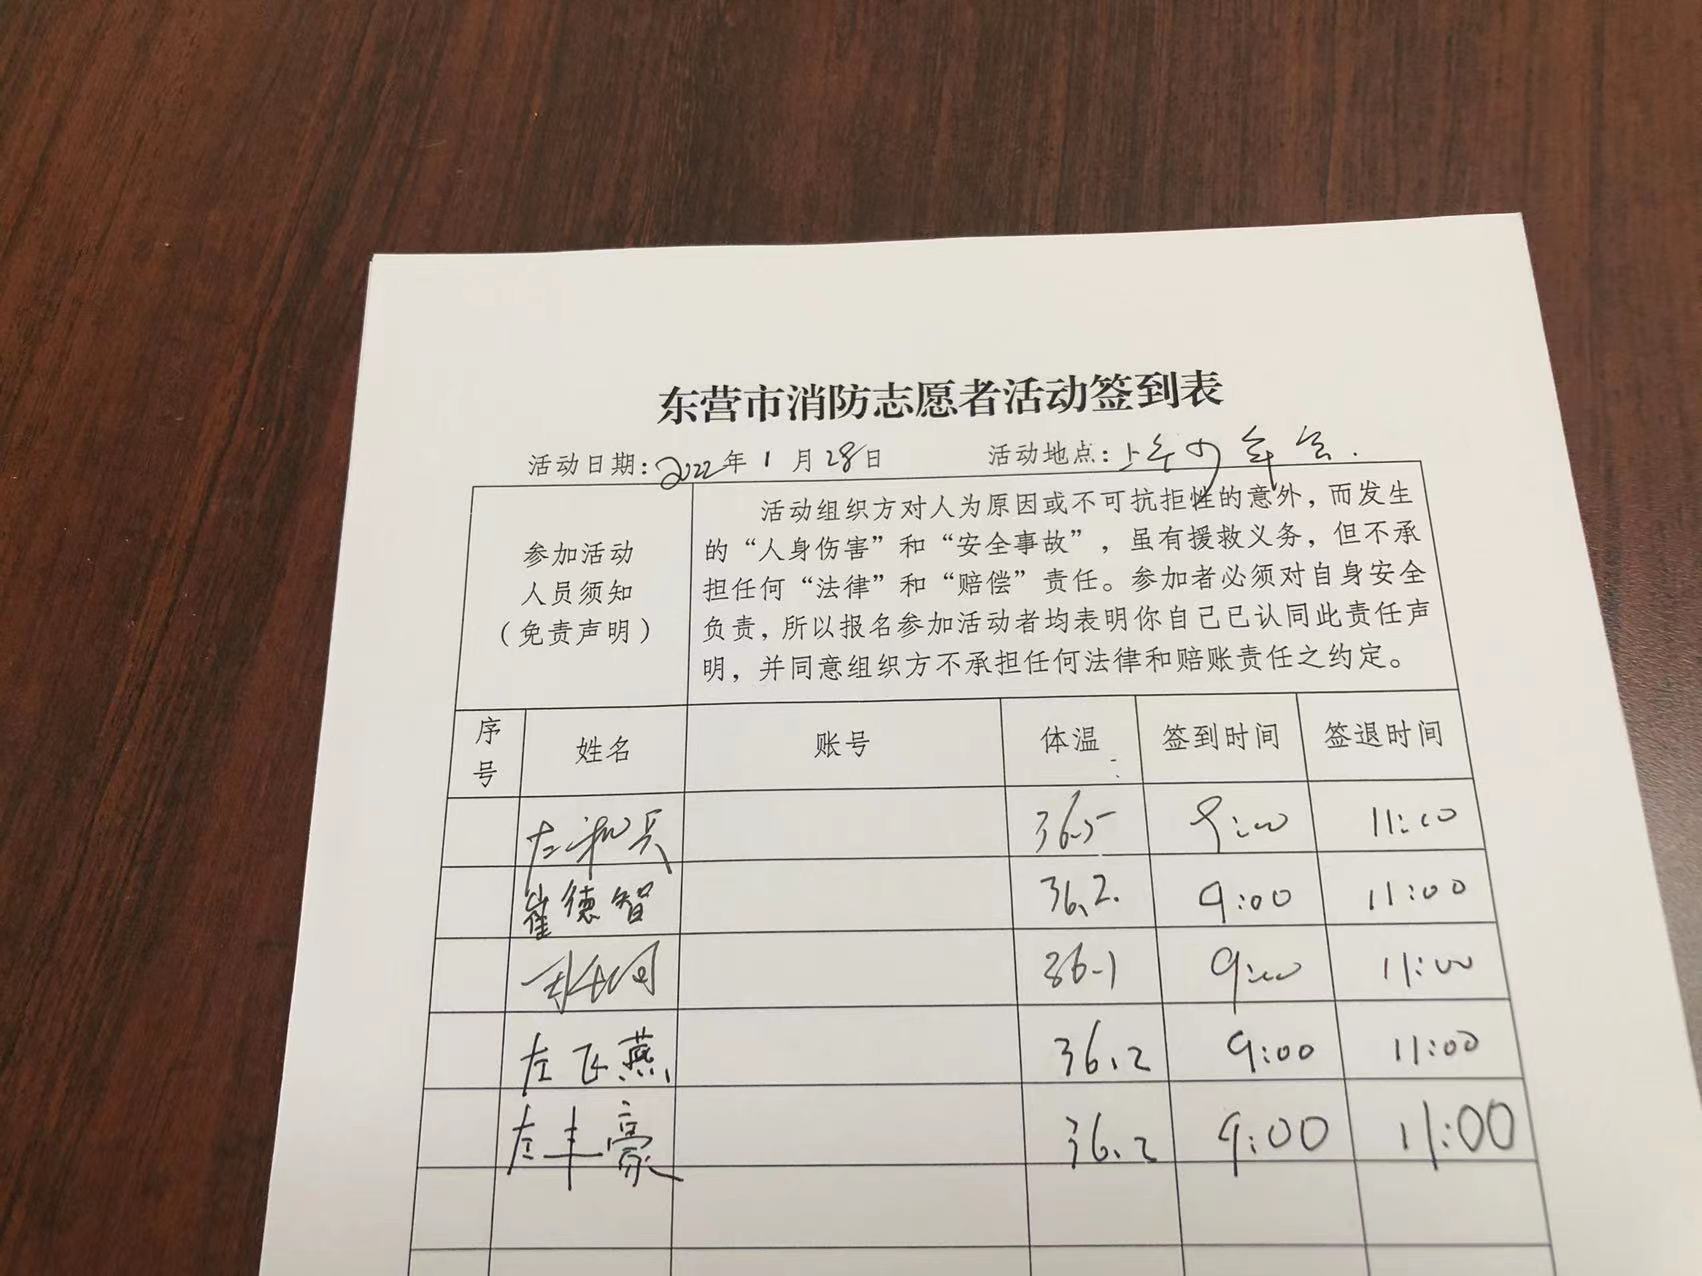 东营市消防志愿者活动签到表
活动日期：2022年1月28日 活动地点：
参加活动
人员须知
（免责声明）
活动组织方对人为原因或不可抗拒性的意外，而发生
的“人身伤害”和“安全事故”，虽有援救义务，但不承
担任何“法律”和“赔偿”责任。参加者必须对自身安全
负责，所以报名参加活动者均表明你自己已认同此责任声
明，并同意组织方不承担任何法律和赔账责任之约定。
序号 姓名 账号 体温 签到时间 签退时间
左和兵 36.5 9:00 11:00
崔德智 36.2. 9:00 11:00
36.1 9:00 11:00
左飞燕 36.2 9:00 11:00
左丰豪 36.2 9:00 11:00